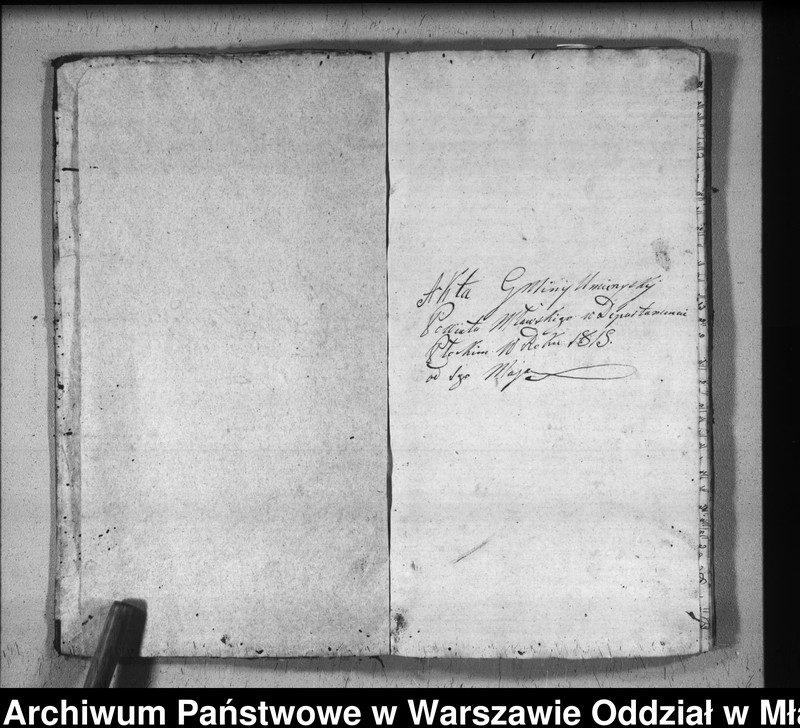 Akta Gminy Unierzyskiy
Powiatu Mławskiego w Departamencie
Płockim W Roku 1815.
od 1go Maja
Archiwum Państwowe w Warszawie Oddział w Mł